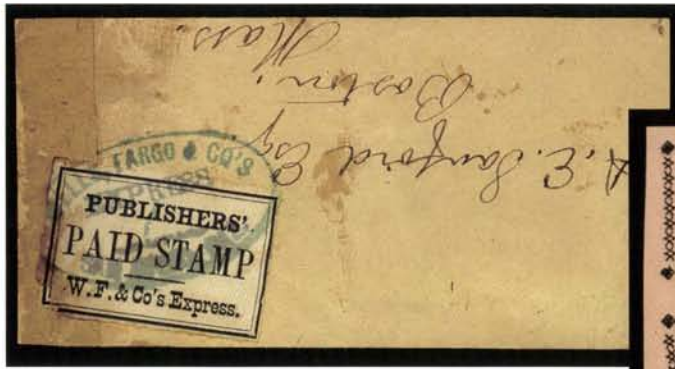 A. E. Sanford Esq
Boston
Mass.
FARGO & CO'S
EXPRESS
PUBLISHERS'
PAID STAMP
W. F. & Co's Express.